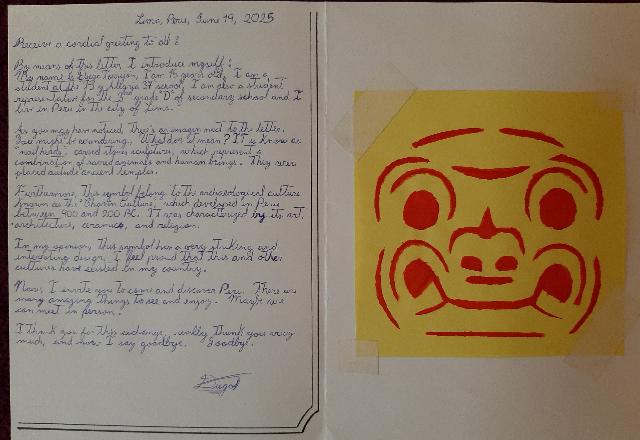 Lima, Peru, June 19, 2025
Receive a cordial greeting to all:
By means of this letter I introduce myself:
My name is Diego I am 15 years old, I am a
student at the 37 school, I am also a student
representative for the 3rd grade "D" of secondary school and I
live in Peru in the city of Lima.
As you may have noticed, there's an image next to the letter.
You might be wondering, What does it mean? IT is know as
nail heads: carved stones sculptures, which represent a
combination of sacred animals and human beings. They were
placed outside ancient temples.
Furthermore, this symbol belong to the archaeological culture
known as the "Chavín Culture", which developed in Peru
between 900 and 200 BC. IT was characterized by its art,
architecture, ceramics, and religion.
In my opinion, this symbol has a very striking and
interesting design, I feel proud that this and other
cultures have existed in my country.
Now, I invite you to come and discover Peru. There are
many amazing things to see and enjoy. Maybe we
can meet in person.
I thank you for this exchange, really thank you very
much, and now I say goodbye. Goodbye.
Diego